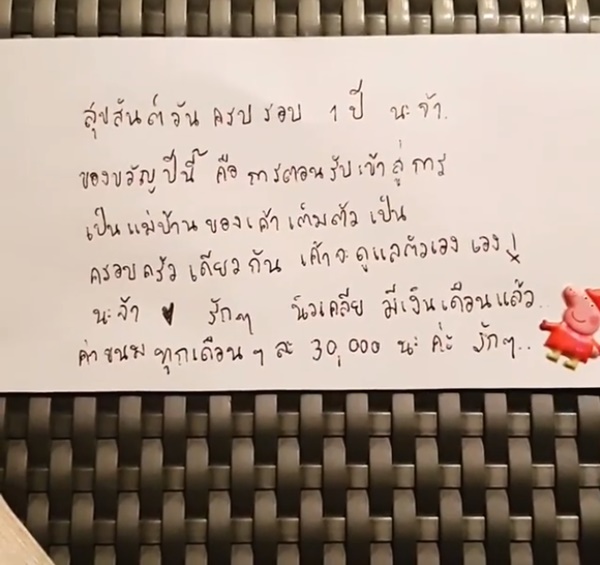 สุขสันต์วัน ครบรอบ 1 ปี นะจ้า.
ของขวัญปีนี้ คือ การตอนรับเข้าสู่การ
เป็นแม่บ้าน ของเค้า เต็มตัว เป็น
ครอบครัว เดียวกัน เค้าจะดูแลตัวเอง เอง!
นะจ้า ♥ รักๆ มีเงินเดือนแล้ว..
ค่าขนม ทุกเดือนๆ ละ 30,000 นะ ค่ะ รักๆ..